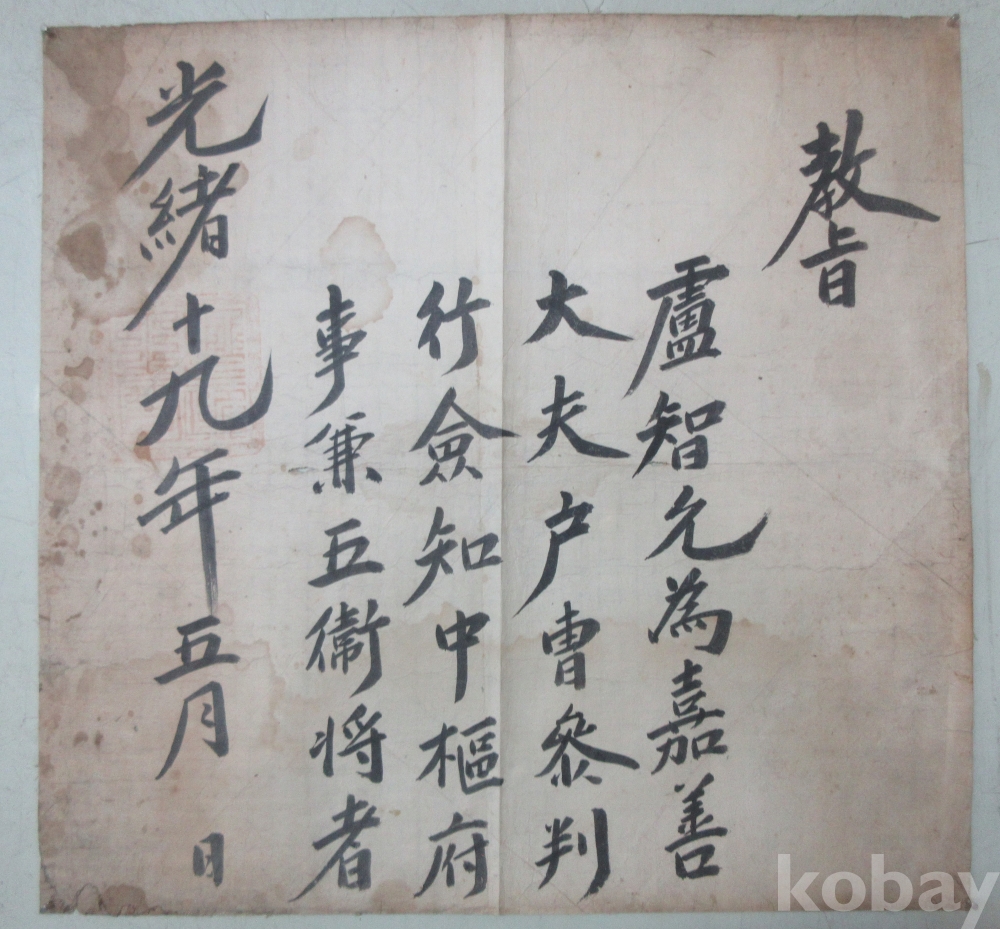 教旨
盧智允為嘉善
大夫戶曹參判
行僉知中樞府
事兼五衛將者
光緖十九年五月 日
kobay